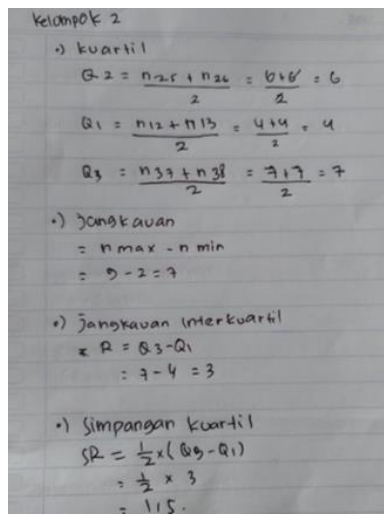 Kelompok 2
•) kuartil
Q2 = n25 + n26 / 2 = 6+6 / 2 = 6
Q1 = n12 + n13 / 2 = 4+4 / 2 = 4
Q3 = n37 + n38 / 2 = 7+7 / 2 = 7
•) Jangkauan
= n max - n min
= 9 - 2 = 7
•) Jangkauan interkuartil
R = Q3-Q1
= 7 - 4 = 3
•) Simpangan kuartil
SR = 1/2 x (Q3-Q1)
= 1/2 x 3
= 1,5.